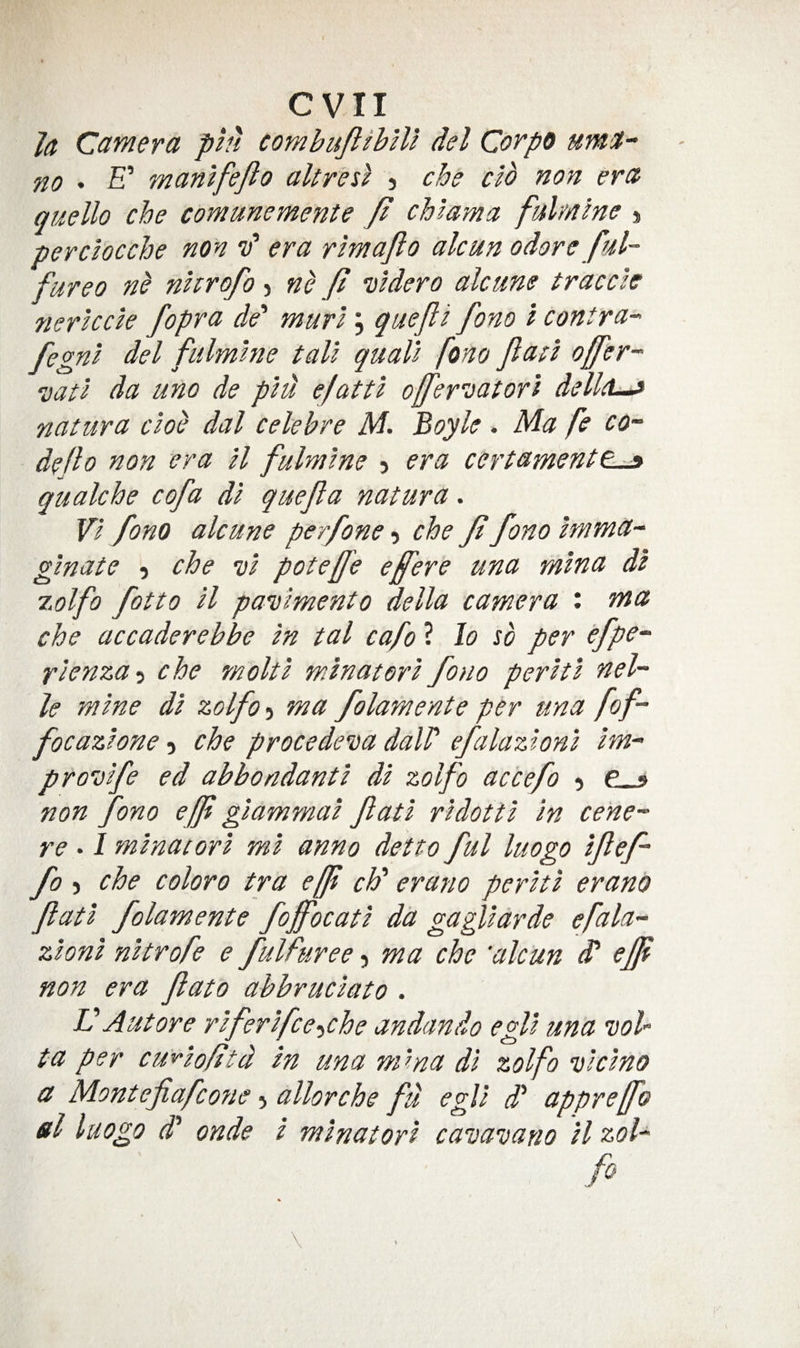 CVII
la Camera più combuſtibili del Corpo uma-
no . E' manifeſto altresì , che ciò non era
quello che comunemente ſi chiama fulmine ,
perciocche non v' era rimaſto alcun odore ſul-
fureo nè nitroſo , nè ſi videro alcune traccie
nericcie ſopra de' muri ; queſti ſono i contra-
ſegni del fulmine tali quali ſono ſtati oſſer-
vati da uno de più eſatti oſſervatori della
natura cioè dal celebre M. Boyle . Ma ſe co-
deſto non era il fulmine , era certamente
qualche coſa di queſta natura .
Vi ſono alcune perſone , che ſi ſono imma-
ginate , che vi poteſſe eſſere una mina di
zolfo ſotto il pavimento della camera : ma
che accaderebbe in tal caſo ? Io sò per eſpe-
rienza , che molti minatori ſono periti nel-
le mine di zolfo , ma ſolamente per una ſof-
focazione , che procedeva dall' eſalazioni im-
proviſe ed abbondanti di zolfo acceſo , e
non ſono eſſi giammai ſtati ridotti in cene-
re . I minatori mi anno detto ſul luogo iſteſ-
ſo , che coloro tra eſſi ch' erano periti erano
ſtati ſolamente ſoffocati da gagliarde eſala-
zioni nitroſe e ſulfuree , ma che 'alcun d' eſſi
non era ſtato abbruciato .
L' Autore riferiſce,che andando egli una vol-
ta per curioſità in una mina di zolfo vicino
a Montefiaſcone , allorche fù egli d' appreſſo
al luogo d' onde i minatori cavavano il zol-
fo